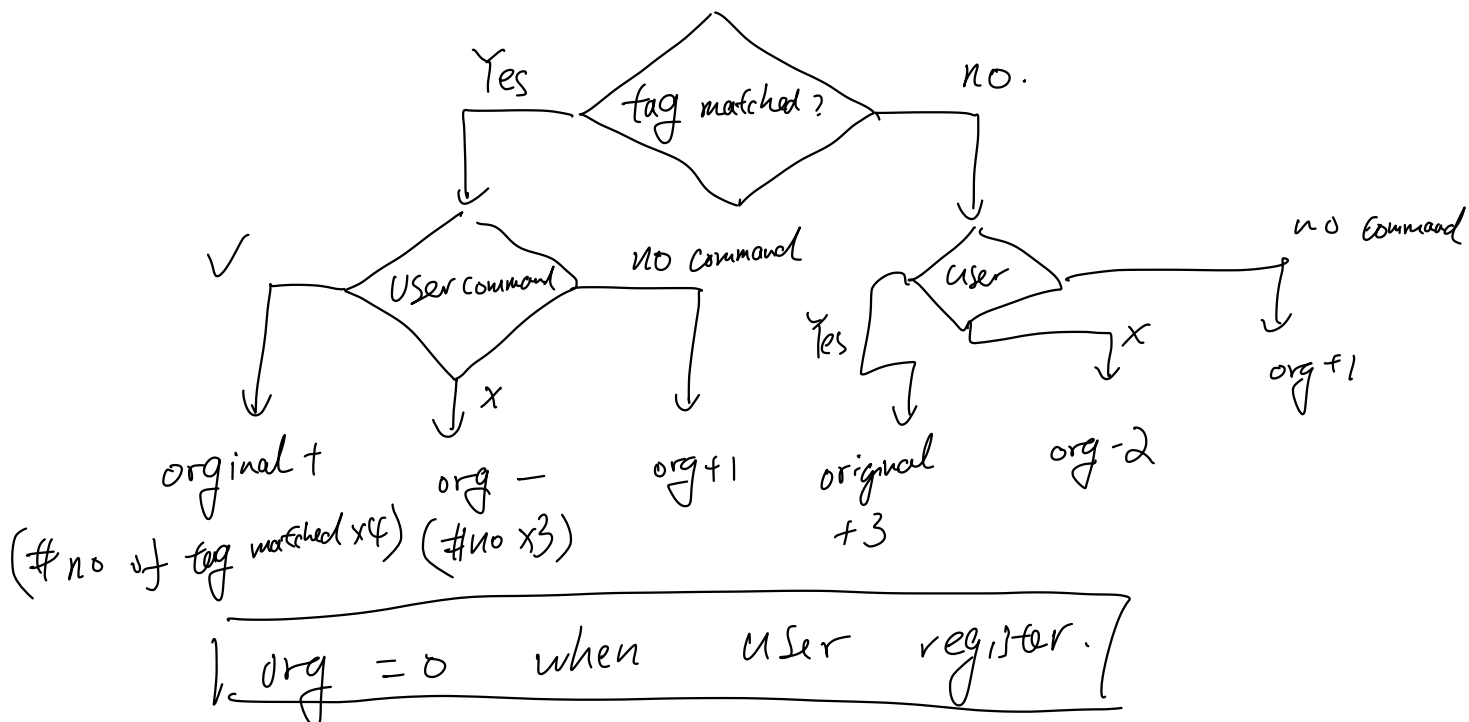 Yes
tag matched?
no.
✓
User command
no command
x
user
Yes
x
no command
orginal +
(#no of tag matched x4)
org -
(#no x3)
org+1
original
+3
org -2
org +1
org = 0 when user register.